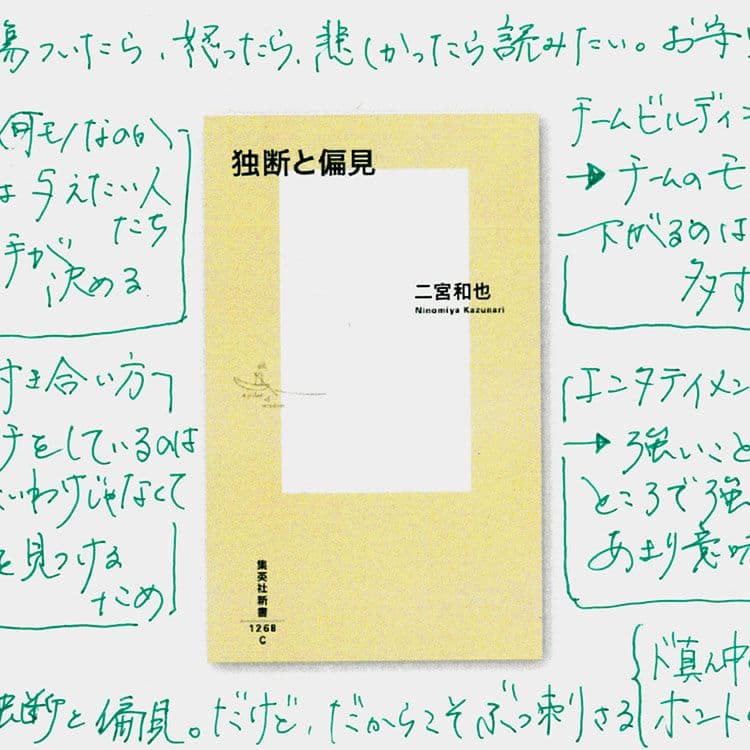 傷ついたら、怒ったら、悲しかったら読みたい。お守り
何モノなのか
は与えたい人
たち
手が
決める
チームビルディン
→チームのモ
下がるのは
多す
独断と偏見
二宮和也
Ninomiya Kazunari
付き合い方
チをしているのは
いわけじゃなくて
を見つける
ため
エンタテイメン
→強いこと
ところで強
あまり意味
集英社新書
1268
C
独断と偏見。だけど、だからこそぶっ刺さる
ド真ん中
ホント